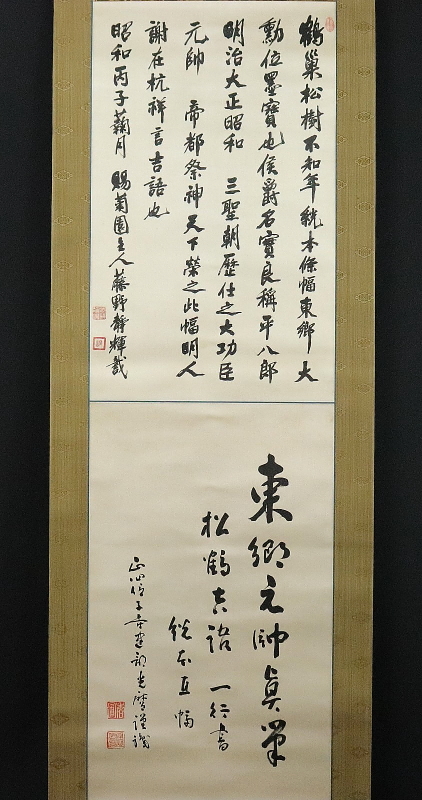 鶴巢松樹不知年統本條幅東郷大
勳位墨寶也侯爵名實良稱平八郎
明治大正昭和 三聖朝歷仕之大功臣
元帥 帝都祭神天下榮之此幅明人
謝在杭祥言吉語也
昭和丙子菊月 賜菊園主人藤野靜輝哉
東郷元帥真筆
松鶴吉語 一行書
統本直幅